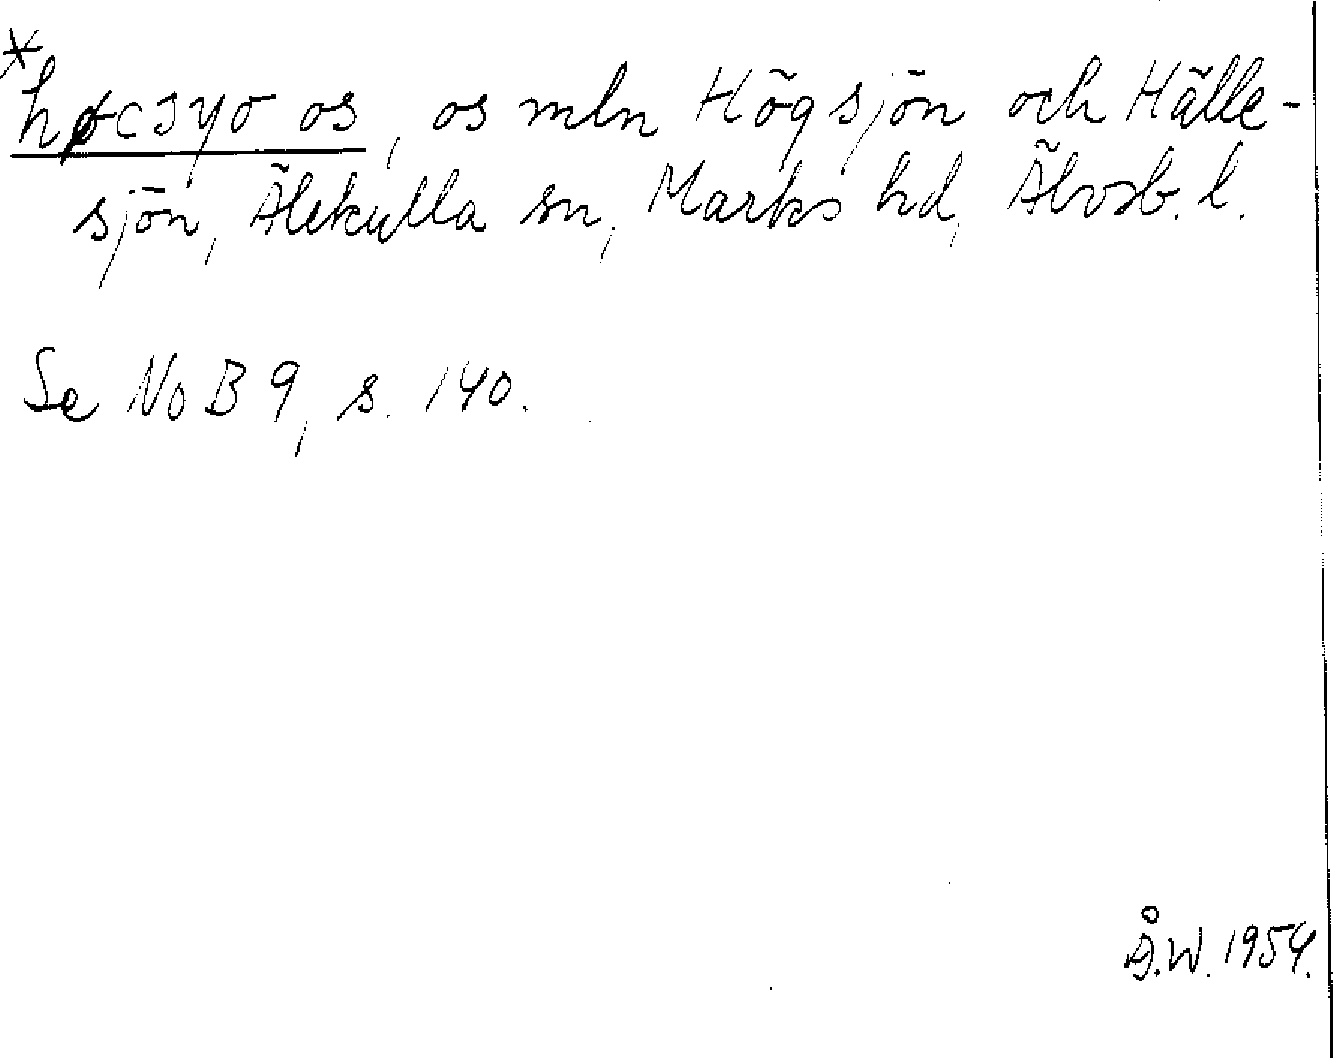 *høcsyo os, os mln Högsjön och Hälle-
sjön, Älekulla sn, Marks hd, Älvsb. l.
Se NoB 9, s. 140.
Å.W. 1954.